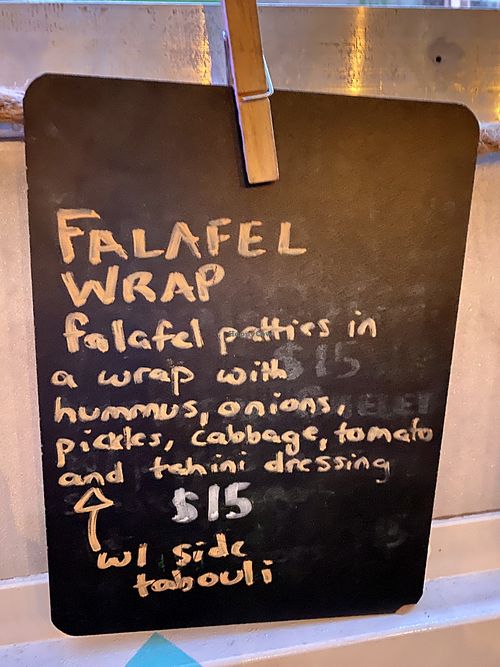 FALAFEL
WRAP
falafel patties in
a wrap with
hummus, onions,
pickles, cabbage, tomato
and tahini dressing
$15
w/ side
tabouli
$15